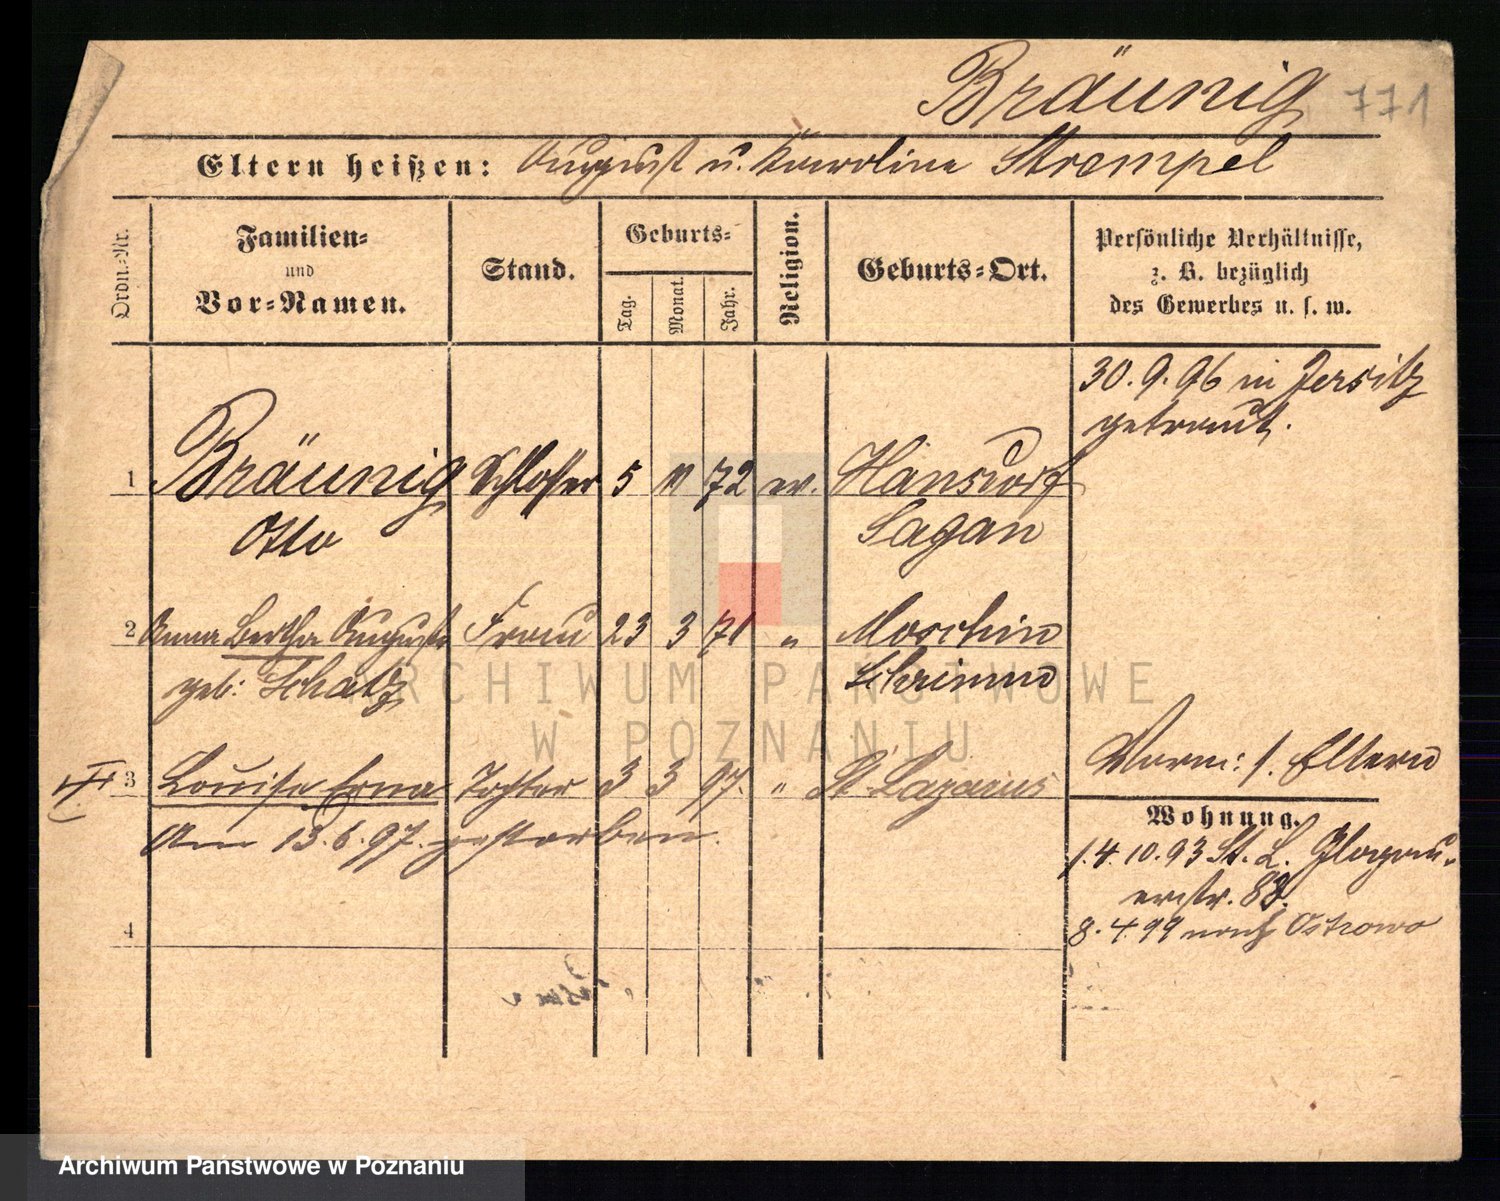 Bräunig 771
Eltern heißen: August u. Karoline Strempel
Ordn.-Nr.
Familien-
und
Vor-Namen.
Stand.
Geburts-
Tag.
Monat.
Jahr.
Religion.
Geburts-Ort.
Persönliche Verhältnisse,
z. B. bezüglich
des Gewerbes u. s. w.
30. 9. 96 in Jersitz
getraut.
1 Bräunig Schlosser 5 11 72 ev. Hansdorf
Otto Sagan
2 Anna Bertha Auguste Frau 23 3 71 " Moschin
geb: Schatz Schrimm
3 Louise Erna Tochter 3 3 97. " St. Lazarus
Am 13. 6. 97. gestorben.
Vorm: s. Eltern
Wohnung.
1. 4. 10. 93 St. L. Glogau-
erstr. 88.
8. 4. 99 nach Ostrowo
4
ARCHIWUM PAŃSTWOWE
W POZNANIU
Archiwum Państwowe w Poznaniu